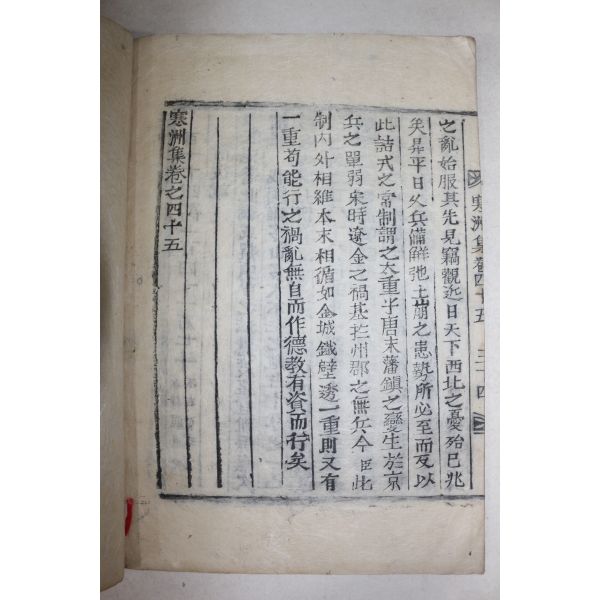 寒洲集 卷四十五 三十四
之亂始服其先見竊觀近日天下西北之憂殆已兆
矣昇平日久兵備解弛土崩之患勢所必至而反以
此詰戎之常制謂之太重乎唐末藩鎭之變生於京
兵之單弱宋時遼金之禍基於州郡之無兵今臣此
制內外相維本末相循如金城鐵壁透一重則又有
一重苟能行之禍亂無自而作德敎有資而行矣
寒洲集卷之四十五